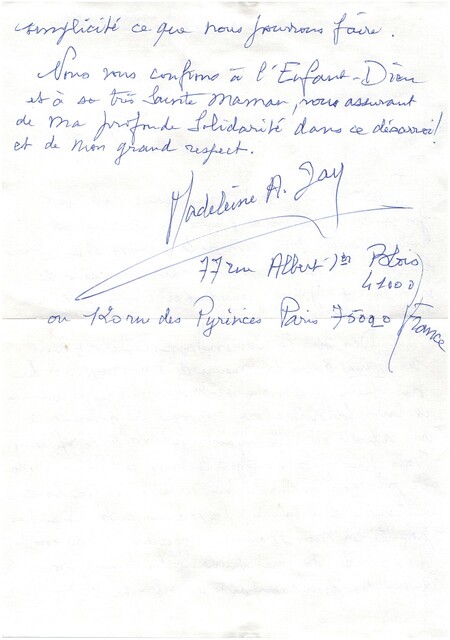 simplicité ce que nous pourrons faire.
Nous vous confions à l'Enfant-Dieu
et à sa très Sainte Maman, vous assurant
de ma profonde Solidarité dans ce désarroi!
et de mon grand respect.
Madeleine A. Jay
77 rue Albert-1er Blois
41000
ou 120 rue des Pyrénées Paris 75020 France